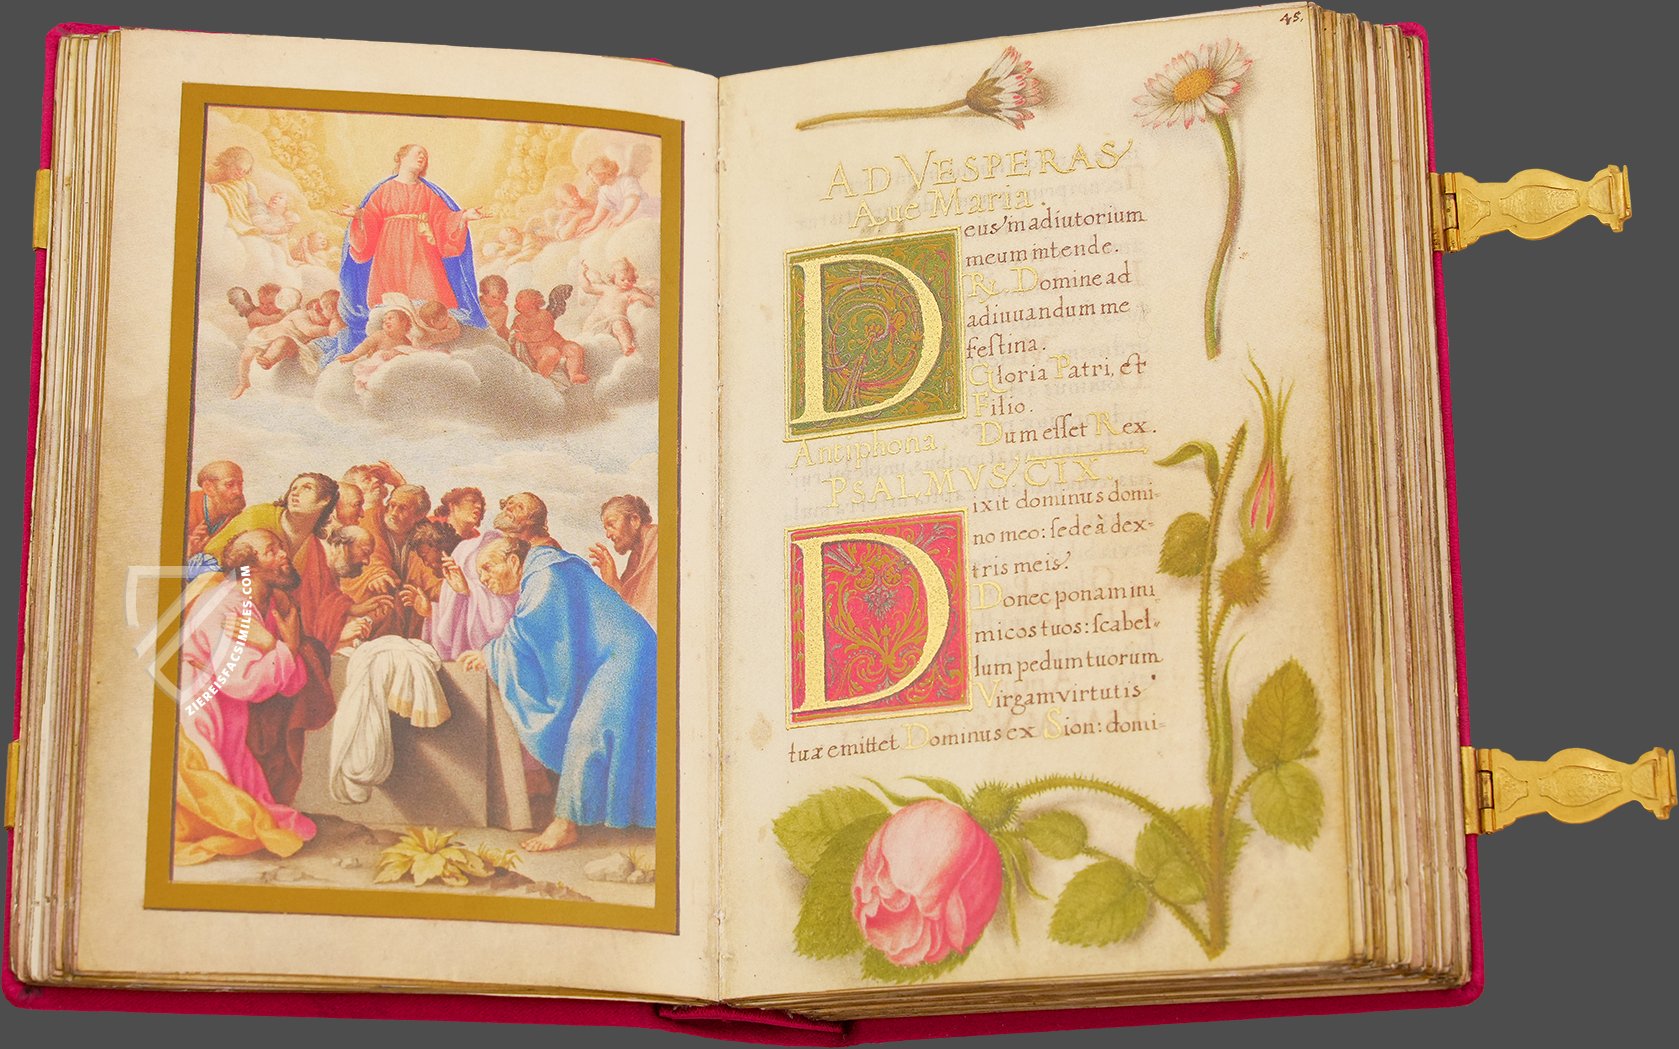 45.
AD VESPERAS
Aue Maria.
Deus in adiutorium
meum intende.
R. Domine ad
adiuuandum me
festina.
Gloria Patri, et
Filio.
Antiphona. Dum esset Rex.
PSALMVS CIX
Dixit dominus domi-
no meo: sede à dex-
tris meis.
Donec ponam ini
micos tuos: scabel-
lum pedum tuorum
Virgam virtutis
tuæ emittet Dominus ex Sion: domi-
ZIEREISFACSIMILES.COM